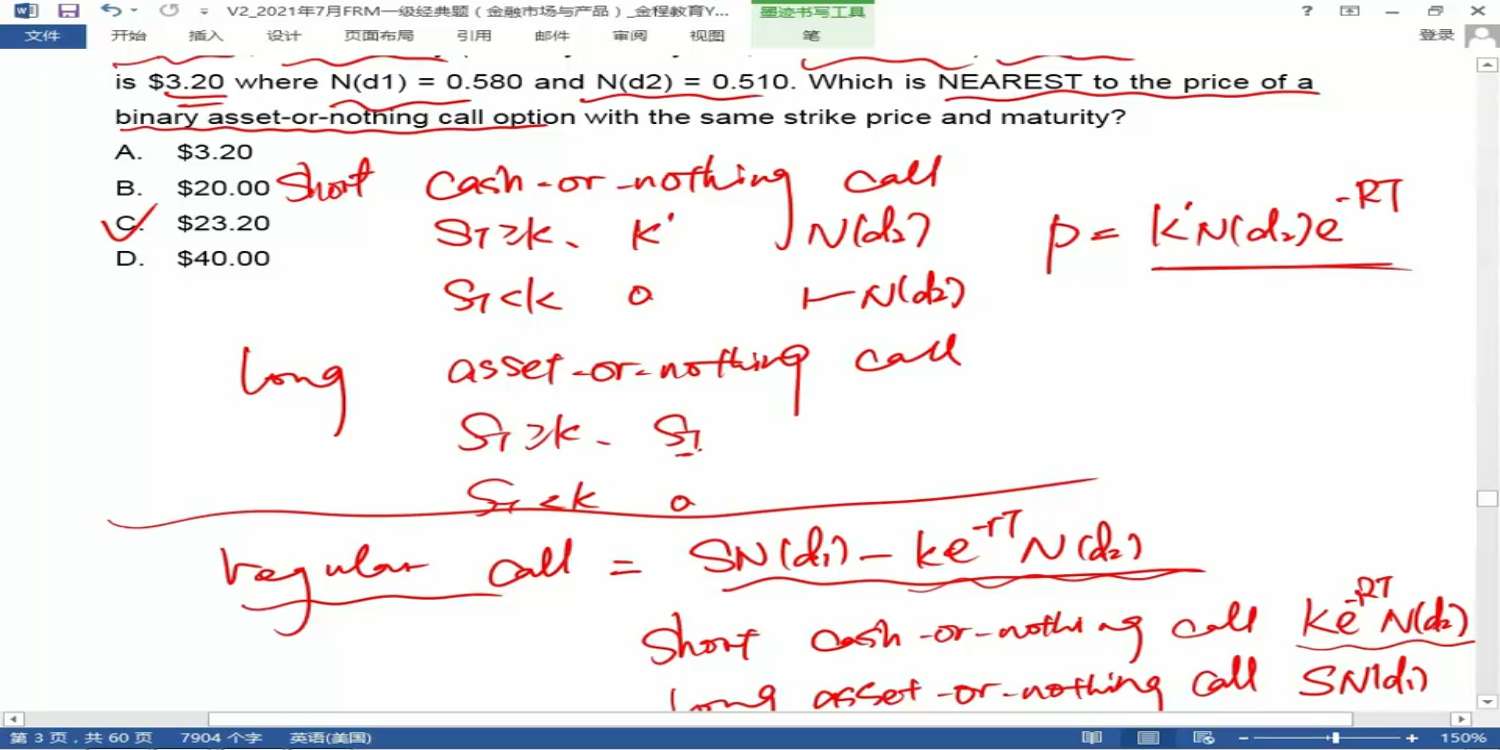 V2_2021年7月FRM一级经典题（金融市场与产品）_金程教育Y...
墨迹书写工具
?
文件 开始 插入 设计 页面布局 引用 邮件 审阅 视图 笔 登录
is $3.20 where N(d1) = 0.580 and N(d2) = 0.510. Which is NEAREST to the price of a
binary asset-or-nothing call option with the same strike price and maturity?
A. $3.20
B. $20.00
C. $23.20
D. $40.00
Short cash-or-nothing call
ST≥K、 K' N(d₂)
P = K'N(d₂)e^-RT
ST<K 0 1-N(d₂)
long asset-or-nothing call
ST≥K、 ST
ST<K 0
regular call = SN(d₁) - Ke^-rT N(d₂)
Short cash-or-nothing call Ke^-RT N(d₂)
long asset-or-nothing call SN(d₁)
第 3 页，共 60 页 7904 个字 英语(美国) 150%